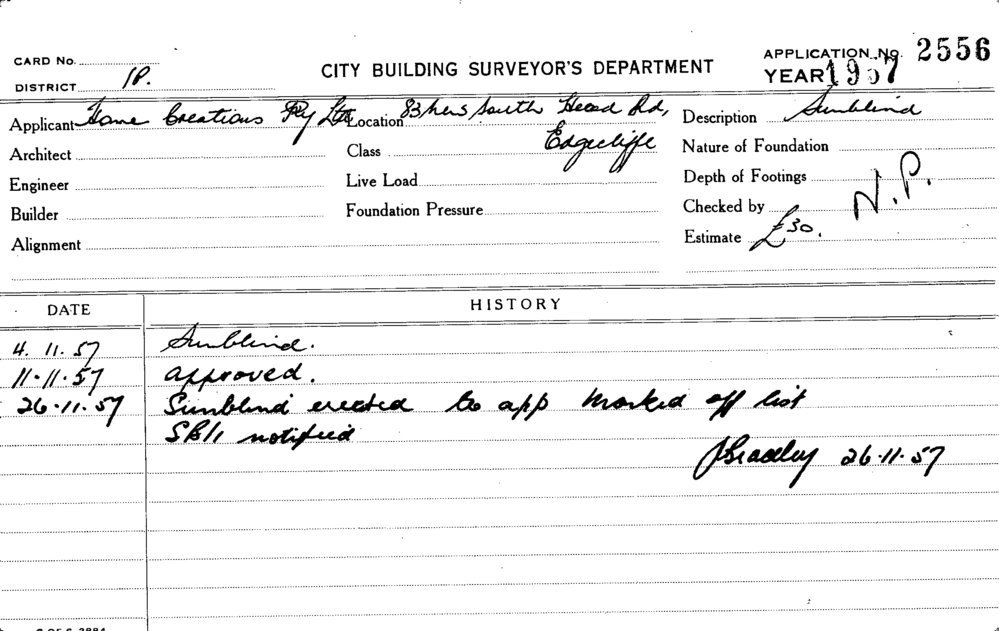 CARD No.
DISTRICT 1P.
CITY BUILDING SURVEYOR'S DEPARTMENT
APPLICATION No. 2556
YEAR 1957
Applicant Home Creations Pty Ltd Location 83 New South Head Rd, Description Sunblind
Edgecliffe
Architect Class Nature of Foundation
Engineer Live Load Depth of Footings
Builder Foundation Pressure Checked by N.P.
Alignment Estimate £30.
DATE HISTORY
4. 11. 57 Sunblind.
11-11-57 approved.
26-11-57 Sunblind erected to app marked off list
notified
Bradley 26-11-57